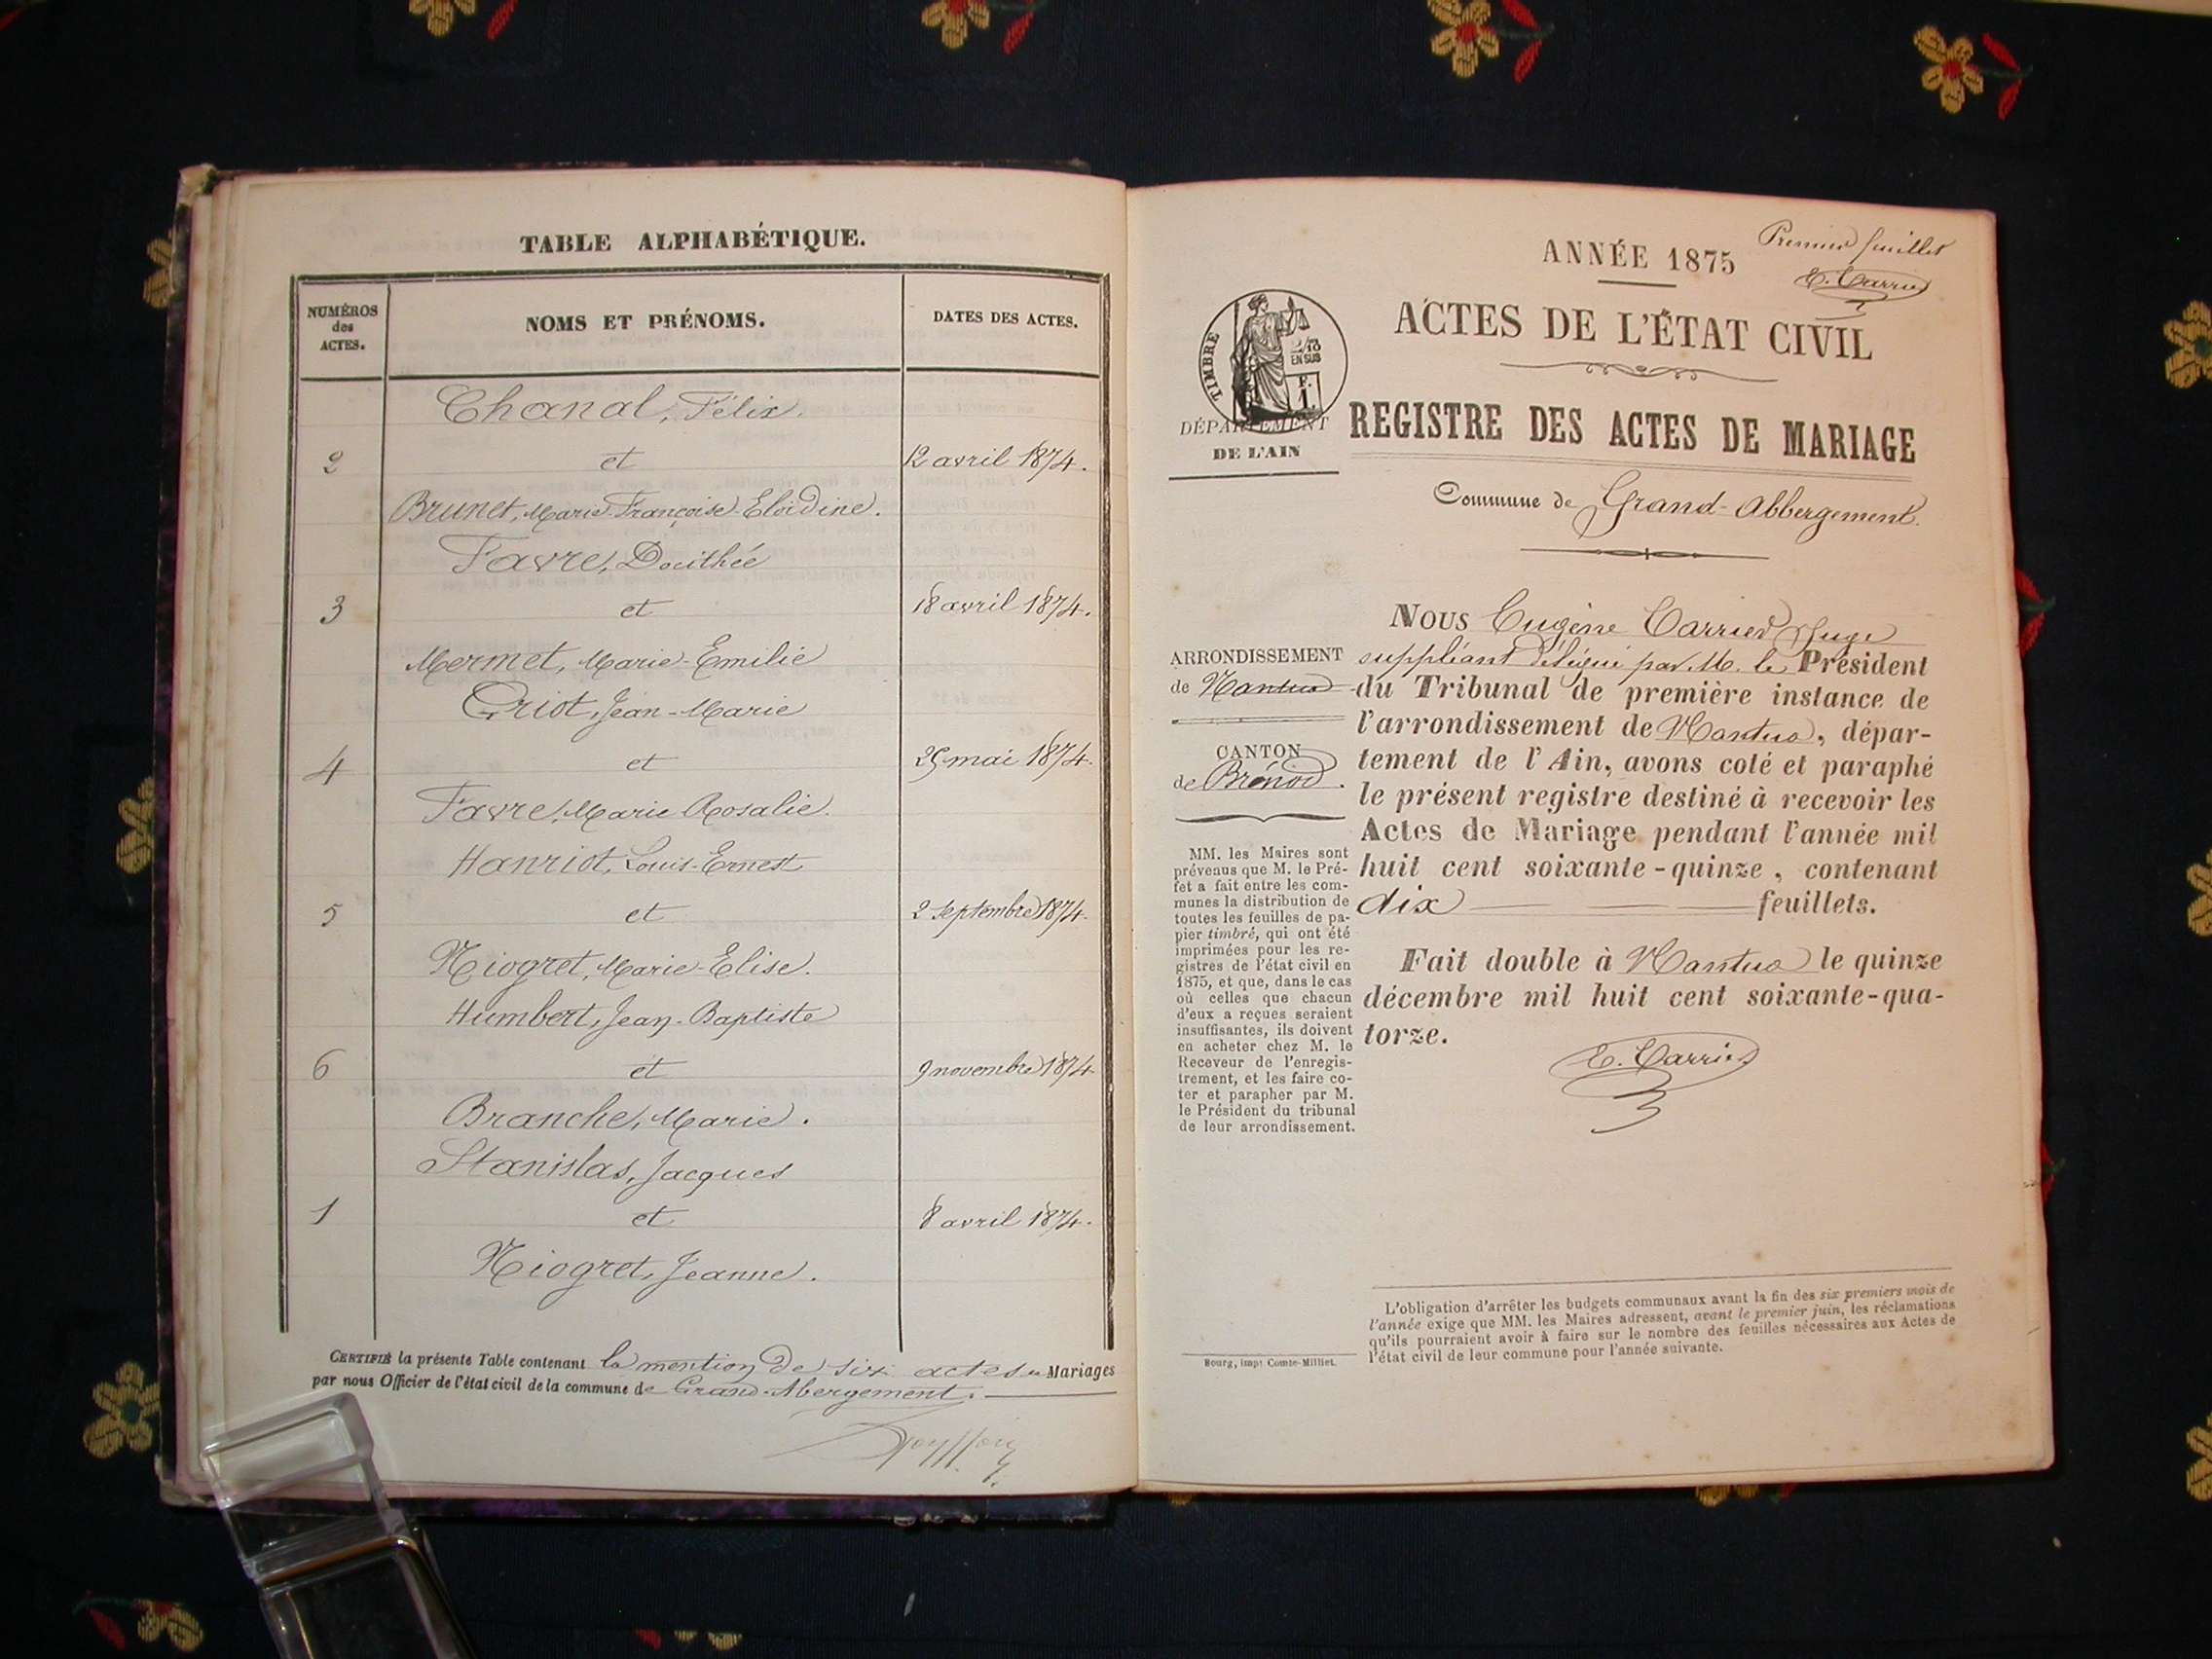 TABLE ALPHABÉTIQUE.
NUMÉROS
des
ACTES.
NOMS ET PRÉNOMS.
DATES DES ACTES.
Chanal, Félix.
2 et 12 avril 1874.
Brunet, Marie-Françoise-Eloïdine.
Favre, Dorithée
3 et 18 avril 1874.
Mermet, Marie-Emilie
Griot, Jean-Marie
4 et 25 mai 1874.
Favre, Marie Rosalie.
Hanriot, Louis-Ernest
5 et 2 septembre 1874.
Niogret, Marie-Elise.
Humbert, Jean-Baptiste
6 et 9 novembre 1874
Branche, Marie.
Stanislas, Jacques
1 et 8 avril 1874.
Niogret, Jeanne.
CERTIFIÉ la présente Table contenant la mention de six actes de Mariages
par nous Officier de l'état civil de la commune de Grand-Abergement.
ANNÉE 1875
Premier feuillet
E. Carrier
ACTES DE L'ÉTAT CIVIL
TIMBRE
2/10
EN SUS
F.
1
DÉPARTEMENT
DE L'AIN
REGISTRE DES ACTES DE MARIAGE
Commune de Grand-Abbergement.
ARRONDISSEMENT
de Nantua
CANTON
de Brénod.
MM. les Maires sont
prévenus que M. le Pré-
fet a fait entre les com-
munes la distribution de
toutes les feuilles de pa-
pier timbré, qui ont été
imprimées pour les re-
gistres de l'état civil en
1875, et que, dans le cas
où celles que chacun
d'eux a reçues seraient
insuffisantes, ils doivent
en acheter chez M. le
Receveur de l'enregis-
trement, et les faire co-
ter et parapher par M.
le Président du tribunal
de leur arrondissement.
NOUS Eugène Carrier Juge
suppléant délégué par M. le Président
du Tribunal de première instance de
l'arrondissement de Nantua, dépar-
tement de l'Ain, avons coté et paraphé
le présent registre destiné à recevoir les
Actes de Mariage pendant l'année mil
huit cent soixante-quinze, contenant
dix feuillets.
Fait double à Nantua le quinze
décembre mil huit cent soixante-qua-
torze.
E. Carrier
L'obligation d'arrêter les budgets communaux avant la fin des six premiers mois de
l'année exige que MM. les Maires adressent, avant le premier juin, les réclamations
qu'ils pourraient avoir à faire sur le nombre des feuilles nécessaires aux Actes de
l'état civil de leur commune pour l'année suivante.
Bourg, impr. Comte-Milliet.